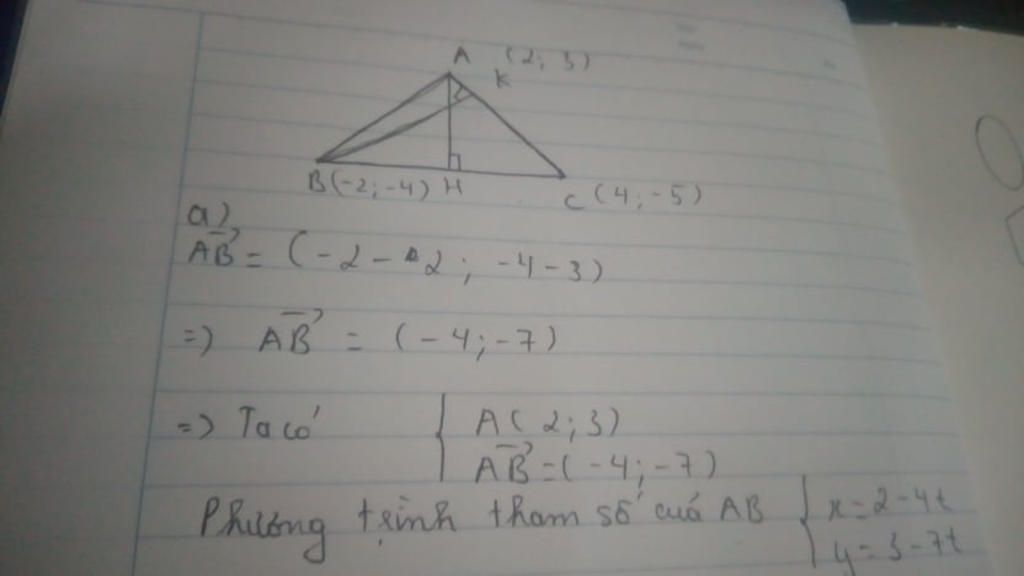 A (2; 3)
K
B(-2; -4) H
C (4; -5)
a)
AB⃗ = (-2 - 2; -4-3)
=) AB⃗ = (-4; -7)
=) Ta có { A(2; 3)
AB⃗ = (-4; -7)
Phương trình tham số của AB { x = 2-4t
y = 3-7t